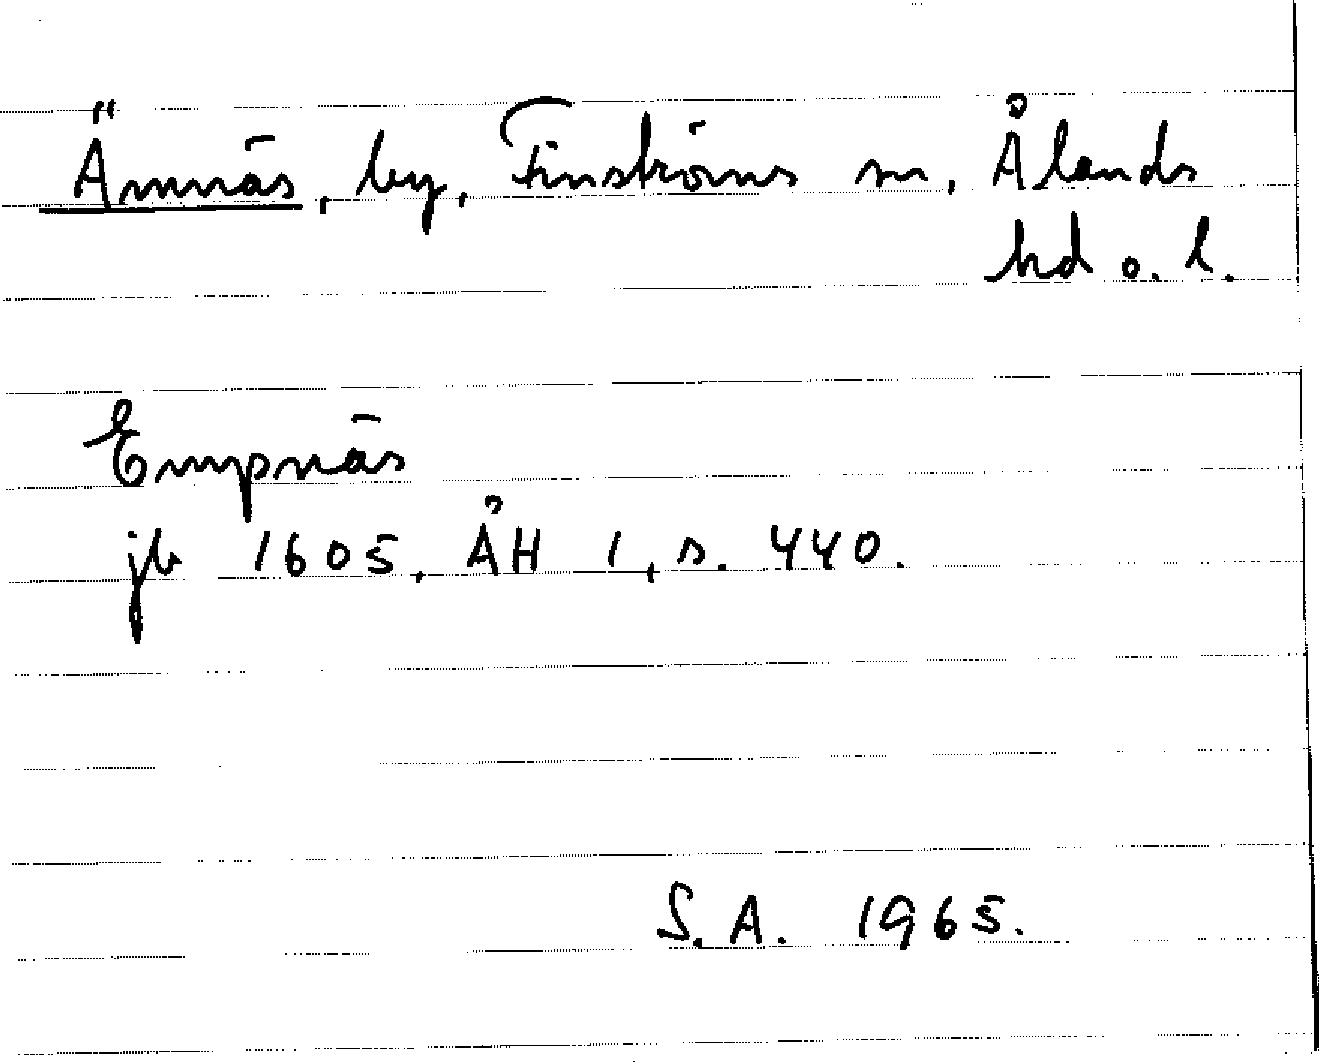 Ämnäs, by, Finströms sn, Ålands
hd o. l.
Empnäs
jb 1605, ÅH 1, s. 440.
S.A. 1965.